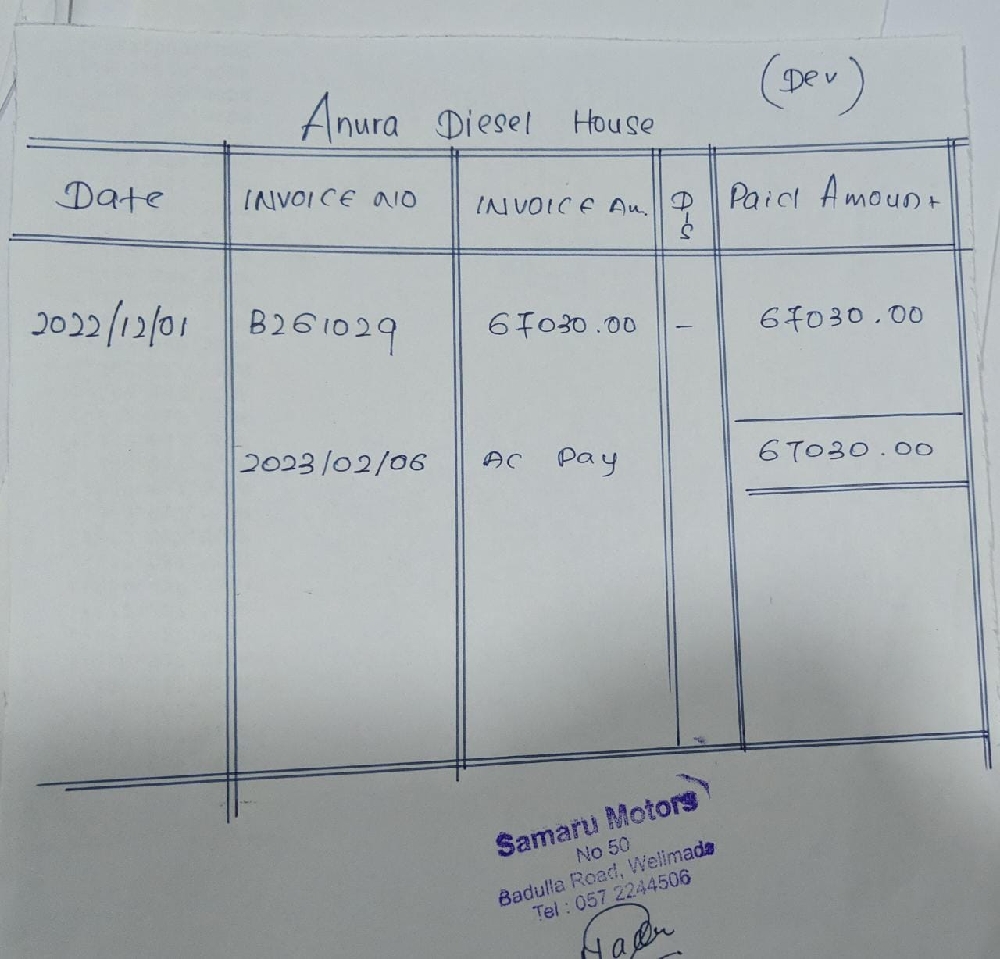 (Dev)
Anura Diesel House
Date INVOICE NO INVOICE Am. D-S Paid Amount
2022/12/01 B261029 67030.00 - 67030.00
2023/02/06 AC Pay 67030.00
Samaru Motors
No 50
Badulla Road, Welimada
Tel : 057 2244506